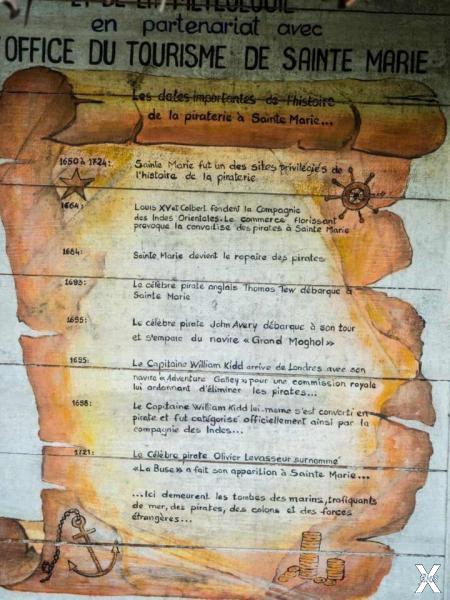 ET DE LA METEOLOGIE
en partenariat avec
OFFICE DU TOURISME DE SAINTE MARIE
Les dates importantes de l'histoire
de la piraterie à Sainte Marie...
1650 à 1724: Sainte Marie fut un des sites privilégiés de
l'histoire de la piraterie
1664: Louis XV et Colbert fondent la Compagnie
des Indes Orientales. Le commerce florissant
provoque la convoitise des pirates à Sainte Marie
1684: Sainte Marie devient le repaire des pirates
1693: Le célèbre pirate anglais Thomas Tew débarque à
Sainte Marie
1695: Le célèbre pirate John Avery débarque à son tour
et s'empare du navire « Grand Moghol »
1695: Le Capitaine William Kidd arrive de Londres avec son
navire « Adventure Galley » pour une commission royale
lui ordonnant d'éliminer les pirates...
1698: Le Capitaine William Kidd lui-meme s'est converti en
pirate et fut catégorisé officiellement ainsi par la
compagnie des Indes...
1721: Le Célèbre pirate Olivier Levasseur surnommé
«La Buse» a fait son apparition à Sainte Marie...
...Ici demeurent les tombes des marins, trafiquants
de mer, des pirates, des colons et des forces
étrangères...
X